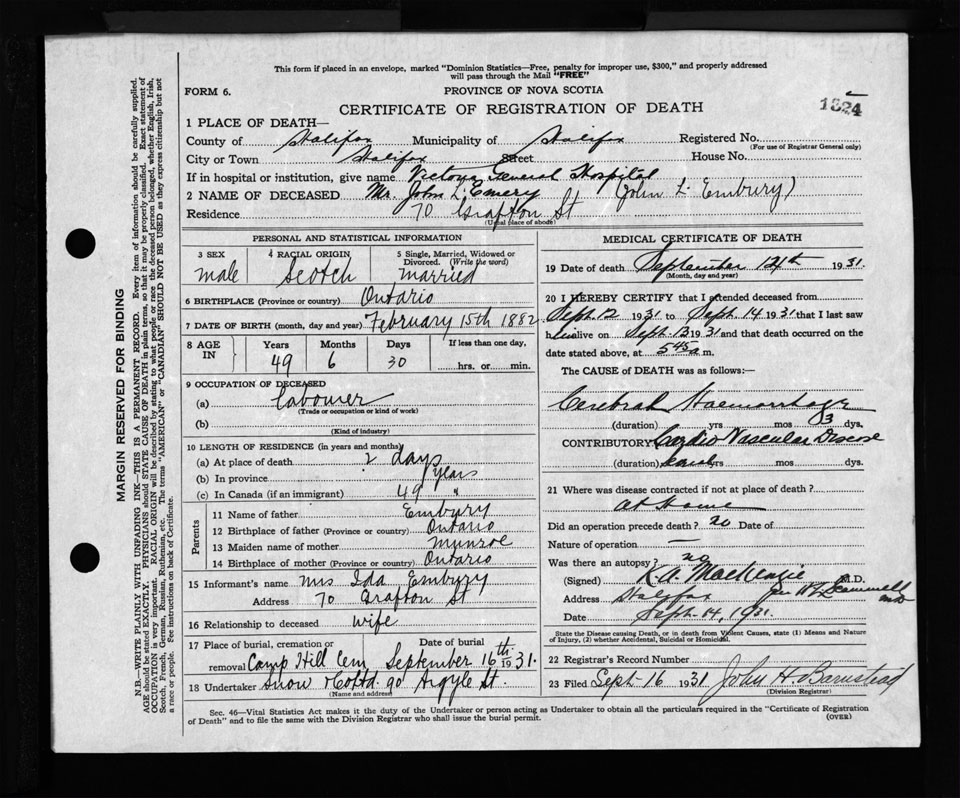 This form if placed in an envelope, marked "Dominion Statistics—Free, penalty for improper use, $300," and properly addressed
will pass through the Mail "FREE"
FORM 6.
PROVINCE OF NOVA SCOTIA
CERTIFICATE OF REGISTRATION OF DEATH
1824
1 PLACE OF DEATH—
County of Halifax Municipality of Halifax Registered No.
(For use of Registrar General only)
City or Town Halifax Street House No.
If in hospital or institution, give name Victoria General Hospital
2 NAME OF DECEASED Mr. John L. Emery (John L. Embury)
Residence 70 Grafton St
(Usual place of abode)
PERSONAL AND STATISTICAL INFORMATION
3 SEX 4 RACIAL ORIGIN 5 Single, Married, Widowed or
Divorced. (Write the word)
male Scotch married
6 BIRTHPLACE (Province or country) Ontario
7 DATE OF BIRTH (month, day and year) February 15th 1882
8 AGE IN Years Months Days If less than one day,
49 6 30 hrs. or min.
9 OCCUPATION OF DECEASED
(a) Labourer
(Trade or occupation or kind of work)
(b)
(Kind of industry)
10 LENGTH OF RESIDENCE (in years and months)
(a) At place of death 2 days
(b) In province years
(c) In Canada (if an immigrant) 49 "
Parents
11 Name of father Embury
12 Birthplace of father (Province or country) Ontario
13 Maiden name of mother Munroe
14 Birthplace of mother (Province or country) Ontario
15 Informant's name Mrs Ida Embury
Address 70 Grafton St
16 Relationship to deceased wife
17 Place of burial, cremation or Date of burial
removal Camp Hill Cem September 16th 1931.
18 Undertaker Snow & Co Ltd. 90 Argyle St.
(Name and address)
MEDICAL CERTIFICATE OF DEATH
19 Date of death September 14th 1931.
(Month, day and year)
20 I HEREBY CERTIFY that I attended deceased from
Sept. 12 1931 to Sept. 14 1931 that I last saw
him alive on Sept. 13 1931 and that death occurred on the
date stated above, at 5 45 a m.
The CAUSE of DEATH was as follows:—
Cerebral Haemorrhage
(duration) yrs mos 3 dys.
CONTRIBUTORY Cardio Vascular Disease
(duration) yrs mos dys.
21 Where was disease contracted if not at place of death?
at Home
Did an operation precede death? no Date of
Nature of operation —
Was there an autopsy? no
(Signed) K.A. MacKenzie M.D.
Address Halifax
Date Sept. 14, 1931.
State the Disease causing Death, or in death from Violent Causes, state (1) Means and Nature
of Injury, (2) whether Accidental, Suicidal or Homicidal.
22 Registrar's Record Number
23 Filed Sept 16 1931 John H Barnstead
(Division Registrar)
Sec. 46—Vital Statistics Act makes it the duty of the Undertaker or person acting as Undertaker to obtain all the particulars required in the "Certificate of Registration
of Death" and to file the same with the Division Registrar who shall issue the burial permit.
(OVER)
MARGIN RESERVED FOR BINDING
N.B.—WRITE PLAINLY WITH UNFADING INK—THIS IS A PERMANENT RECORD. Every item of information should be carefully supplied.
AGE should be stated EXACTLY. PHYSICIANS should STATE CAUSE OF DEATH in plain terms, so that it may be properly classified. Exact statement of
OCCUPATION is very important. RACIAL ORIGIN will be described by stating to what people or race the deceased person belonged, whether English, Irish,
Scotch, French, German, Russian, Ruthenian, etc. The terms "AMERICAN" or "CANADIAN" SHOULD NOT BE USED as they express citizenship but not
a race or people. See instructions on back of Certificate.